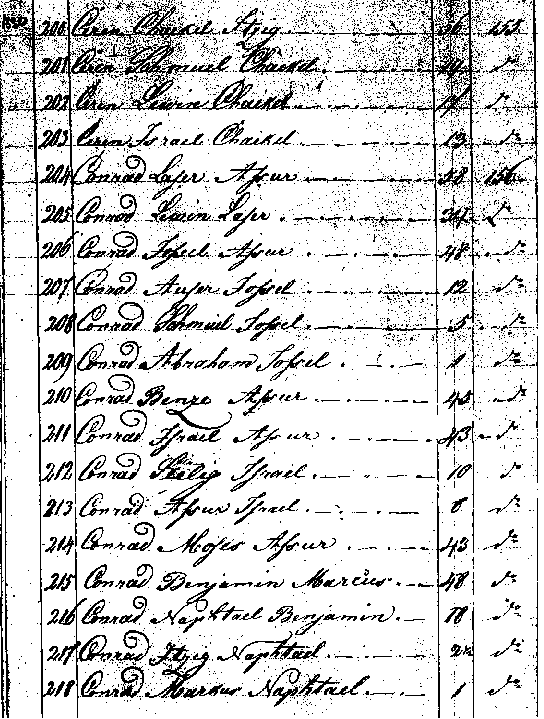 200 Ceren Chaikel Itzig 56 155
201 Ceren Schmuel Chaikel d°
202 Ceren Lewin Chaikel d°
203 Ceren Israel Chaikel 13 d°
204 Conrad Laser Assur 58 156
205 Conrad Lewin Laser 24 d°
206 Conrad Jossel Assur 48 d°
207 Conrad Jossel 12 d°
208 Conrad Schmuel Jossel 5 d°
209 Conrad Abraham Jossel 1 d°
210 Conrad Benze Assur 45 d°
211 Conrad Israel Assur 43 d°
212 Conrad Israel 10 d°
213 Conrad Assur Israel 8 d°
214 Conrad Moses Assur 43 d°
215 Conrad Benjamin Marcus 48 d°
216 Conrad Naphtael Benjamin 18 d°
217 Conrad Itzig Naphtael d°
218 Conrad Markus Naphtael 1 d°